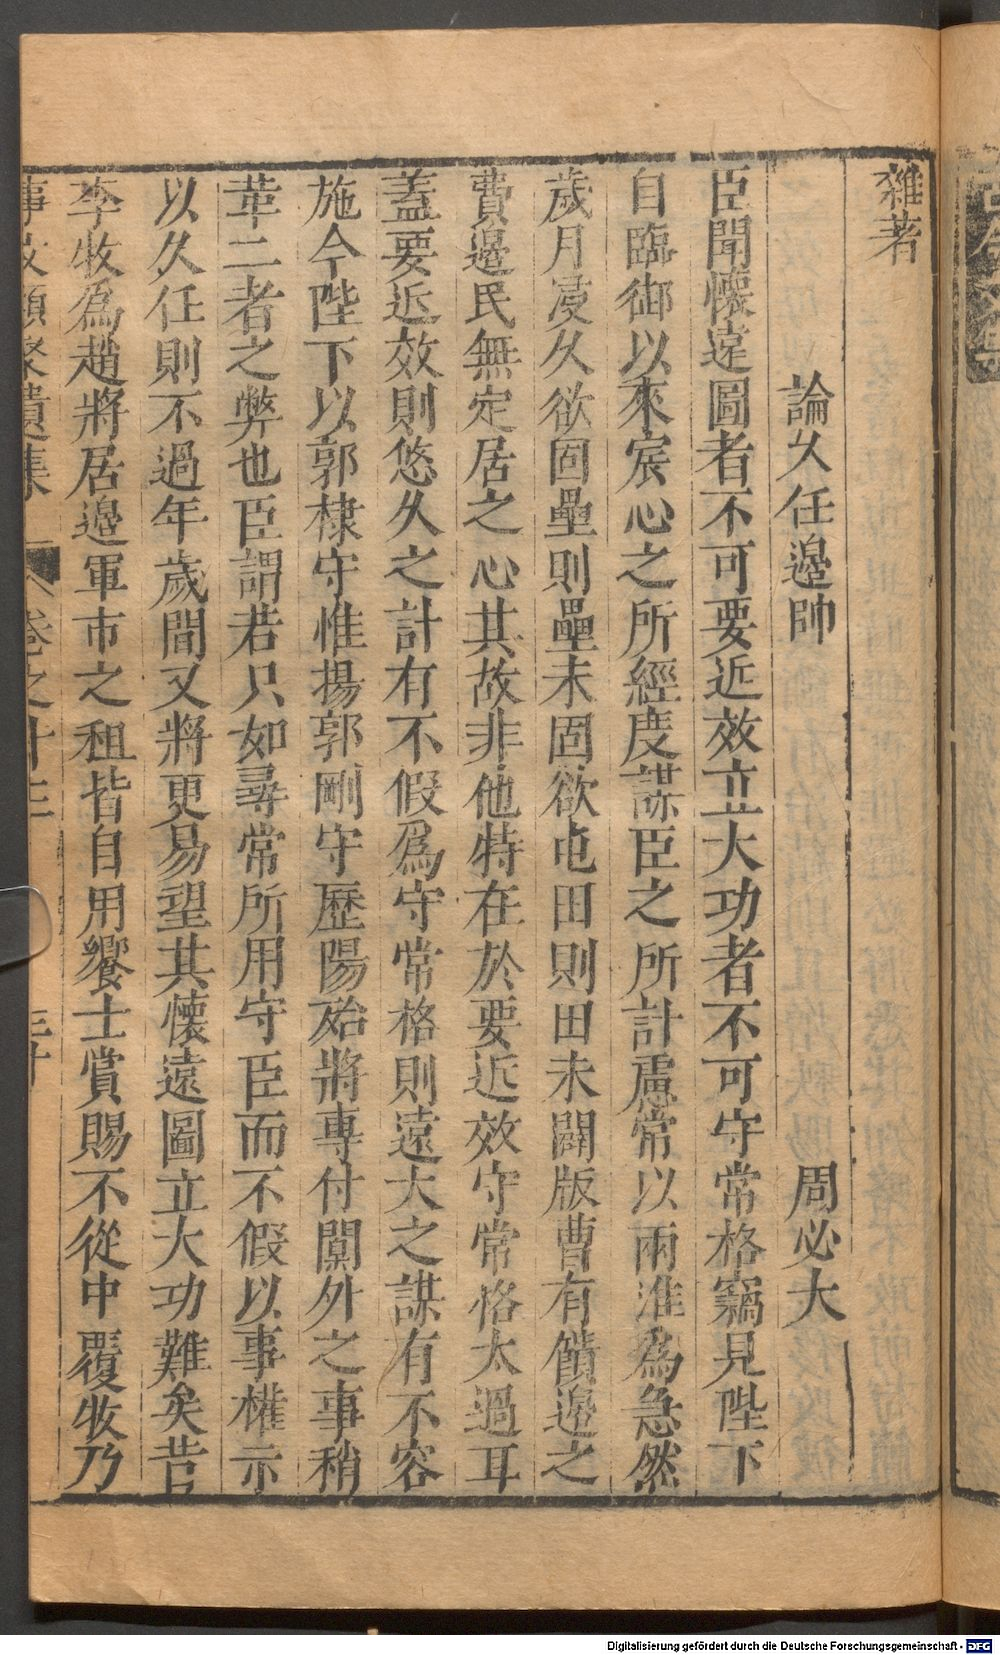 雜著
論久任邊帥　周必大
臣聞懷遠圖者不可要近效立大功者不可守常格竊見陛下
自臨御以來宸心之所經度謀臣之所計慮常以兩淮爲急然
歲月寖久欲固壘則壘未固欲屯田則田未闢版曹有饋邊之
費邊民無定居之心其故非他特在於要近效守常格太過耳
蓋要近效則悠久之計有不假爲守常格則遠大之謀有不容
施今陛下以郭棣守惟揚郭剛守歷陽殆將專付閫外之事稍
革二者之弊也臣謂若只如尋常所用守臣而不假以事權示
以久任則不過年歲間又將更易望其懷遠圖立大功難矣昔
李牧爲趙將居邊軍市之租皆自用饗士賞賜不從中覆牧乃
事文類聚遺集　卷之十三　三十
Digitalisierung gefördert durch die Deutsche Forschungsgemeinschaft - DFG